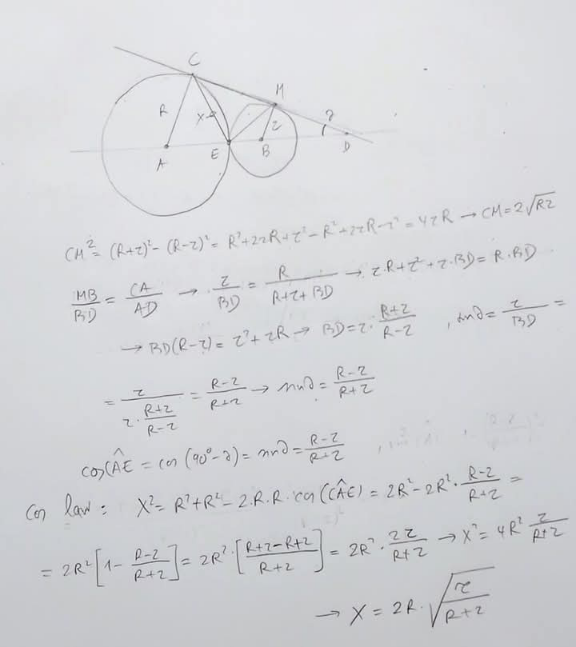 C
R
X
M
r
∂
A
E
B
D
CM² = (R+r)² - (R-r)² = R²+2rR+r²-R²+2rR-r² = 4rR → CM = 2√Rr
MB/BD = CA/AD → r/BD = R/(R+r+BD) → r·R+r²+r·BD = R·BD
→ BD(R-r) = r²+rR → BD = r·(R+r)/(R-r) , sin∂ = r/BD =
= r/(r·(R+r)/(R-r)) = (R-r)/(R+r) → sin∂ = (R-r)/(R+r)
cos(CÂE) = cos(90°-∂) = sin∂ = (R-r)/(R+r)
Cos law: X² = R²+R²-2·R·R·cos(CÂE) = 2R²-2R²·(R-r)/(R+r) =
= 2R²[1-(R-r)/(R+r)] = 2R²·[(R+r-R+r)/(R+r)] = 2R²·2r/(R+r) → X² = 4R² r/(R+r)
→ X = 2R·√(r/(R+r))